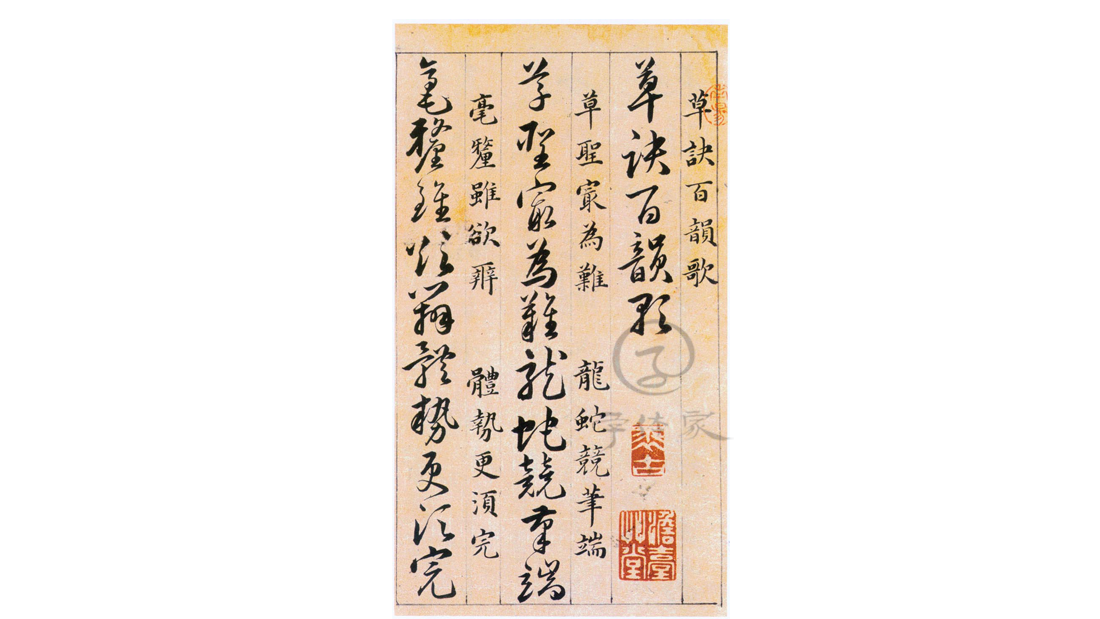 草訣百韻歌
草訣百韻歌
草聖㝡為難 龍蛇競筆端
草聖㝡為難龍蛇競筆端
毫釐雖欲辨 體勢更須完
毫釐雖欲辨體勢更須完
字体家